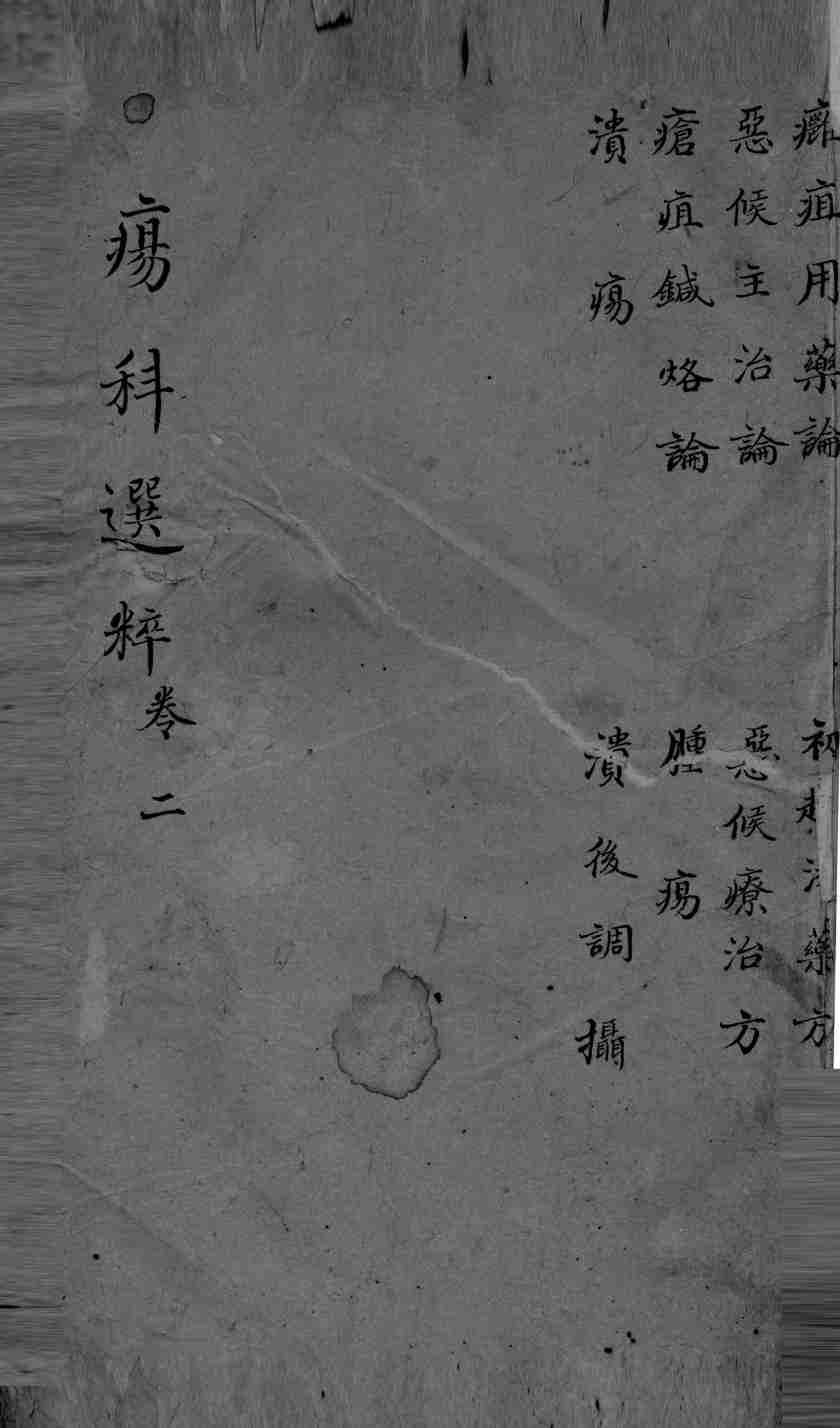 癰疽用藥論
惡候主治論
瘡疽鍼烙論
潰瘍
初起法藥方
惡候療治方
腫瘍
潰後調攝
瘍科選粹卷二